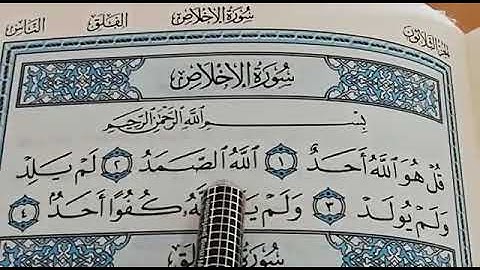 الجزء الثلاثون سورة الإخلاص الفلق الناس
سُورَةُ الإِخْلَاصِ
بِسْمِ اللَّهِ الرَّحْمَٰنِ الرَّحِيمِ
قُلْ هُوَ اللَّهُ أَحَدٌ ١ اللَّهُ الصَّمَدُ ٢ لَمْ يَلِدْ
وَلَمْ يُولَدْ ٣ وَلَمْ كُفُوًا أَحَدٌ ٤
سُورَةُ